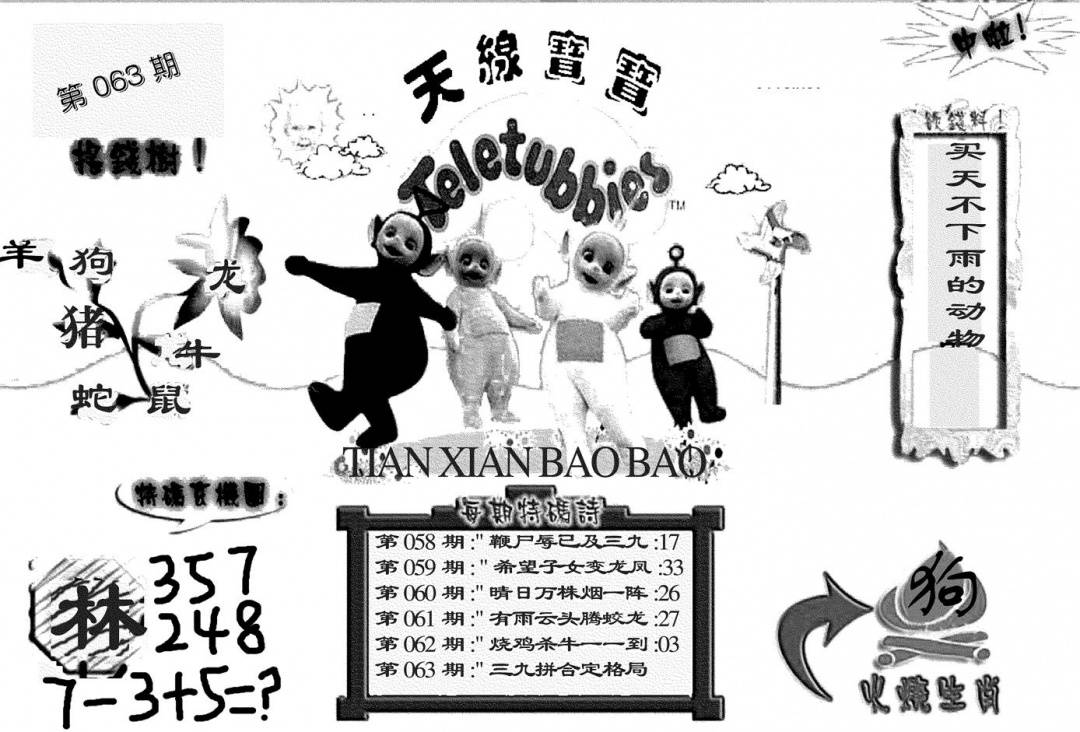 第 063 期
天線寶寶
中啦！
Teletubbies
TM
搖錢樹！
羊
狗
龙
猪
牛
蛇
鼠
买天不下雨的动物
TIAN XIAN BAO BAO
每期特碼詩
第 058 期 :" 鞭尸辱已及三九 :17
第 059 期 :" 希望子女变龙凤 :33
第 060 期 :" 晴日万株烟一阵 :26
第 061 期 :" 有雨云头腾蛟龙 :27
第 062 期 :" 烧鸡杀牛一一到 :03
第 063 期 :" 三九拼合定格局
357
248
7－3+5=?
狗
火燒生肖